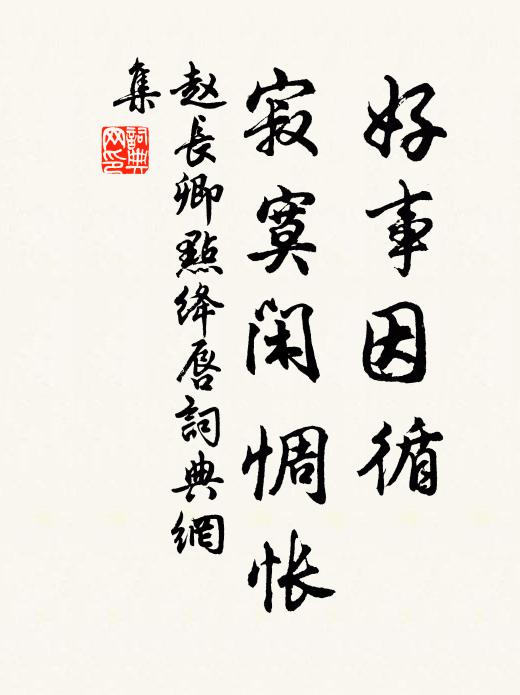 好事因循
寂寞闲惆怅
赵長卿點绛唇詞典網
集
詞典网印